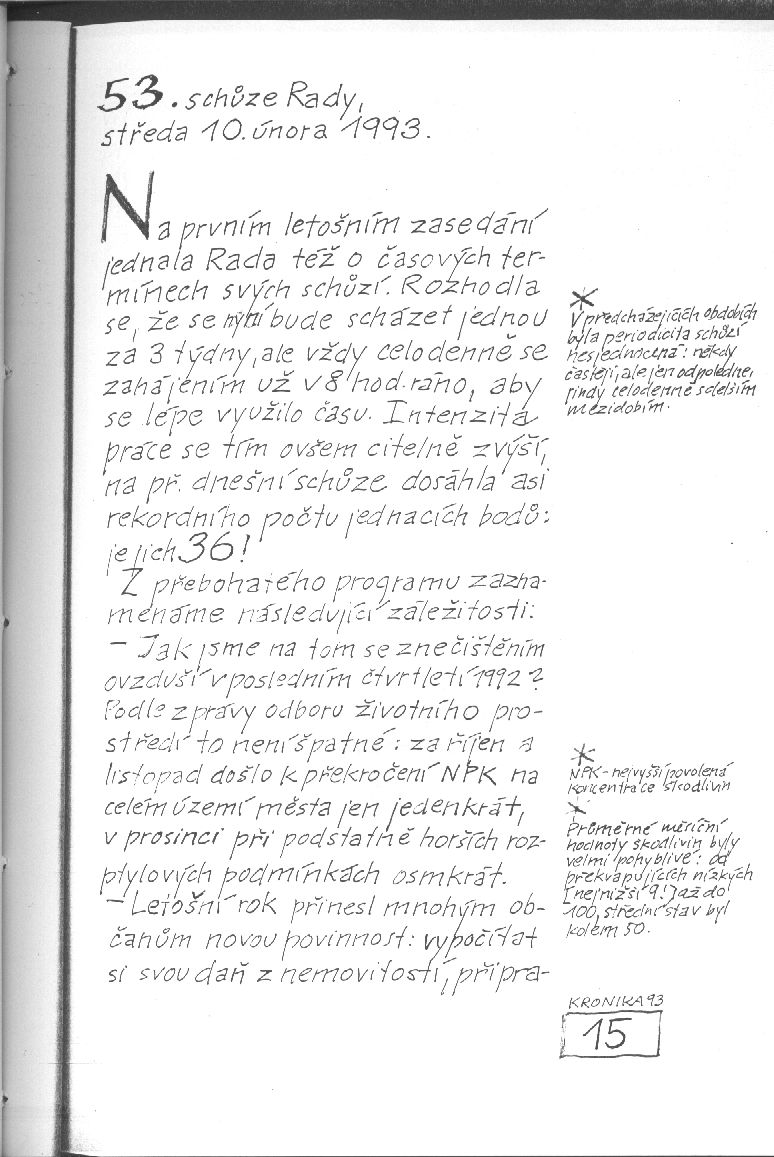 53. schůze Rady,
středa 10. února 1993.
Na prvním letošním zasedání
jednala Rada též o časových ter-
mínech svých schůzí. Rozhodla
se, že se nyní bude scházet jednou
za 3 týdny, ale vždy celodenně se
zahájením už v 8 hod. ráno, aby
se lépe využilo času. Intenzita
práce se tím ovšem citelně zvýší,
na př. dnešní schůze dosáhla asi
rekordního počtu jednacích bodů:
je jich 36!
Z přebohatého programu zazna-
menáme následující záležitosti:
- Jak jsme na tom se znečištěním
ovzduší v posledním čtvrtletí 1992?
Podle zprávy odboru životního pro-
středí to není špatné: za říjen a
listopad došlo k překročení NPK na
celém území města jen jedenkrát,
v prosinci při podstatně horších roz-
ptylových podmínkách osmkrát.
- Letošní rok přinesl mnohým ob-
čanům novou povinnost: vypočítat
si svou daň z nemovitostí, připra-
* V předcházejících obdobích
byla periodicita schůzí
nesjednocená: někdy
častěji, ale jen odpoledne,
jindy celodenně s delším
mezidobím.
*
NPK - nejvyšší povolená
koncentrace škodlivin
*
Průměrné měsíční
hodnoty škodlivin byly
velmi pohyblivé: od
překvapujících nízkých
(nejnižší 9!) až do
100, střední stav byl
kolem 50.
KRONIKA 93
15